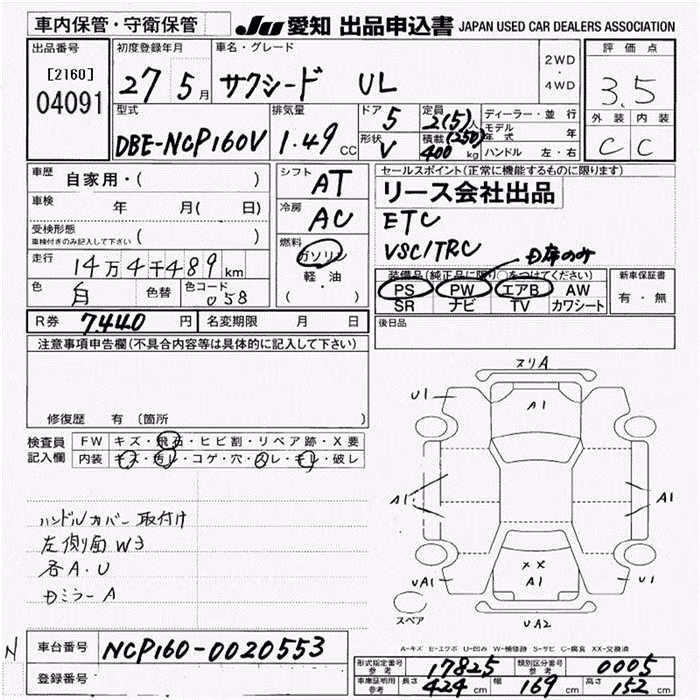 車内保管・守衛保管
JU 愛知 出品申込書 JAPAN USED CAR DEALERS ASSOCIATION
出品番号
[2160]
04091
初度登録年月
27 5月
車名・グレード
サクシード UL
2WD
・
4WD
評価点
3.5
外装 内装
C C
型式
DBE-NCP160V
排気量
1.49 CC
ドア 5
形状 V
定員 2(5)人
積載 (250)
400 kg
ディーラー・並行
モデル年式 年
ハンドル 左・右
車歴 自家用・( )
車検 年 月( 日)
受検形態
車検付きのみ記入して下さい ( )
走行 14万4千489km
色 白 色替 色コード 058
シフト AT
冷房 AC
燃料
ガソリン
軽・油
( )
セールスポイント(正常に機能するものに限ります)
リース会社出品
ETC
VSC/TRC
D席のみ
装備品(純正品に限り○をつけてください)
PS PW エアB AW
SR ナビ TV カワシート
新車保証書
有・無
R券 7440円 名変期限 月 日
後日品
注意事項申告欄(不具合内容等は具体的に記入して下さい)
修復歴 有(箇所 )
検査員
記入欄
FW キズ・飛石・ヒビ割・リペア跡・X要
内装 キズ・汚レ・コゲ・穴・スレ・キレ・破レ
ハンドルカバー取付け
左側面 W3
各A.U
Dミラー A
ヌリA
U1
A1
A1
A1
××
A1
UA1
U1
UA2
スペア
A-キズ E-エクボ U-凹み W-補修跡 S-サビ C-腐食 XX-交換済
N
車台番号 NCP160-0020553
登録番号
形式指定番号 参考 17825 類別区分番号 参考 0005
車庫証明用 参考 長さ 424cm 幅 169cm 高さ 152cm